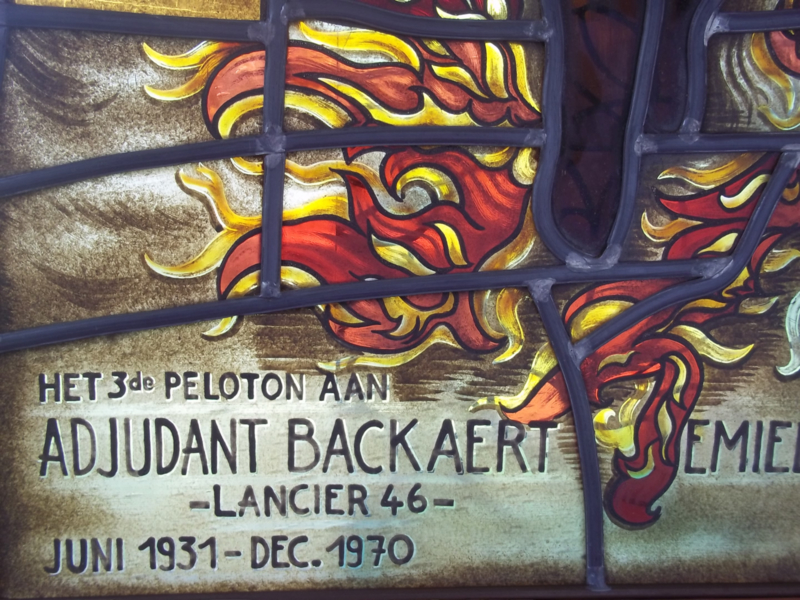 HET 3de PELOTON AAN
ADJUDANT BACKAERT EMIEL
-LANCIER 46-
JUNI 1931-DEC. 1970